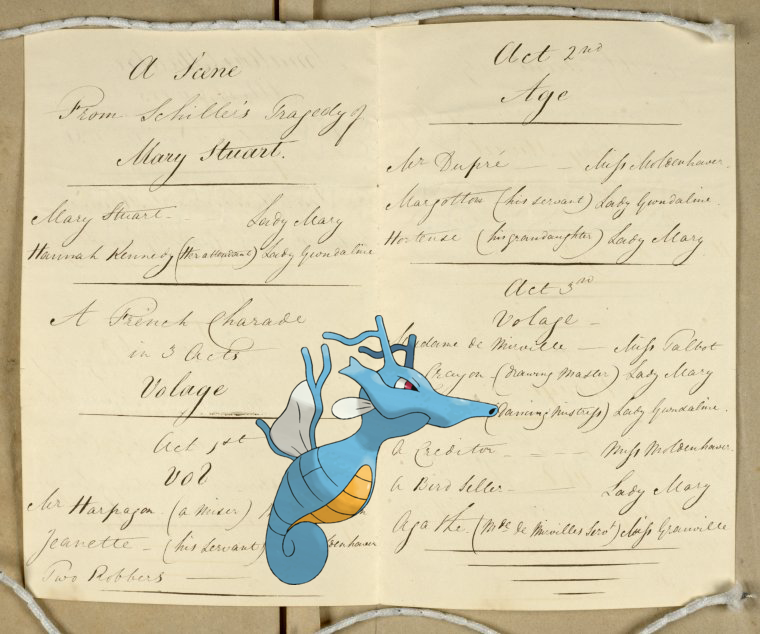 A Scene
From Schiller's Tragedy of
Mary Stuart.
Mary Stuart - Lady Mary
Hannah Kennedy (Her attendant) Lady Gwendaline
A French Charade
in 3 Acts
Volage
Act 1st
Vol
Mr Harpagon (a miser)
Jeanette - (his servant)
Two Robbers
Act 2nd
Age
Mr Dupré - - Miss Moldenhawer.
Margotton (his servant) Lady Gwendaline.
Hortense (his grandaughter) Lady Mary
Act 3rd
Volage -
de Mirville - Miss Talbot
Crayon (drawing master) Lady Mary
(Dancing Mistress) Lady Gwendaline.
A Creditor - - - Miss Moldenhawer.
A Bird Seller - Lady Mary
Agathe (Mde de Mirvilles Servt) Miss Granville